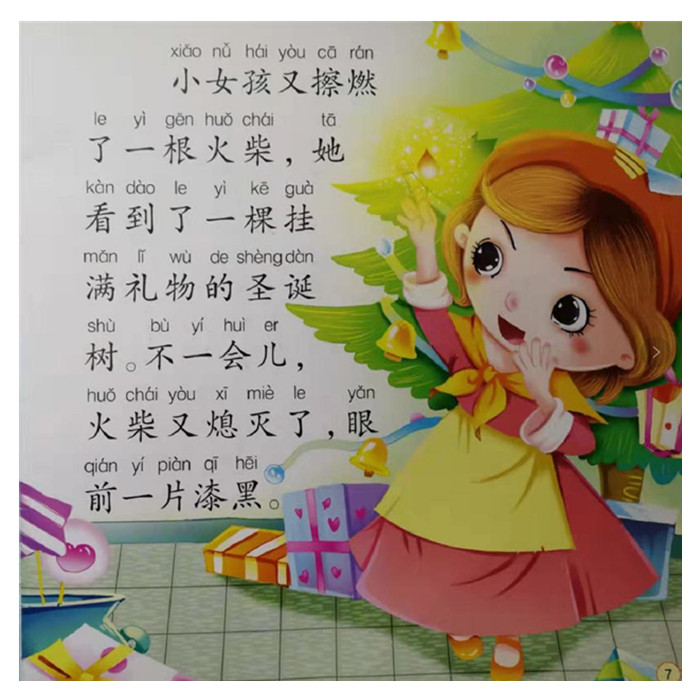 xiǎo nǚ hái yòu cā rán
小女孩又擦燃
le yì gēn huǒ chái tā
了一根火柴，她
kàn dào le yì kē guà
看到了一棵挂
mǎn lǐ wù de shèng dàn
满礼物的圣诞
shù bù yí huì er
树。不一会儿，
huǒ chái yòu xī miè le yǎn
火柴又熄灭了，眼
qián yí piàn qī hēi
前一片漆黑。
7